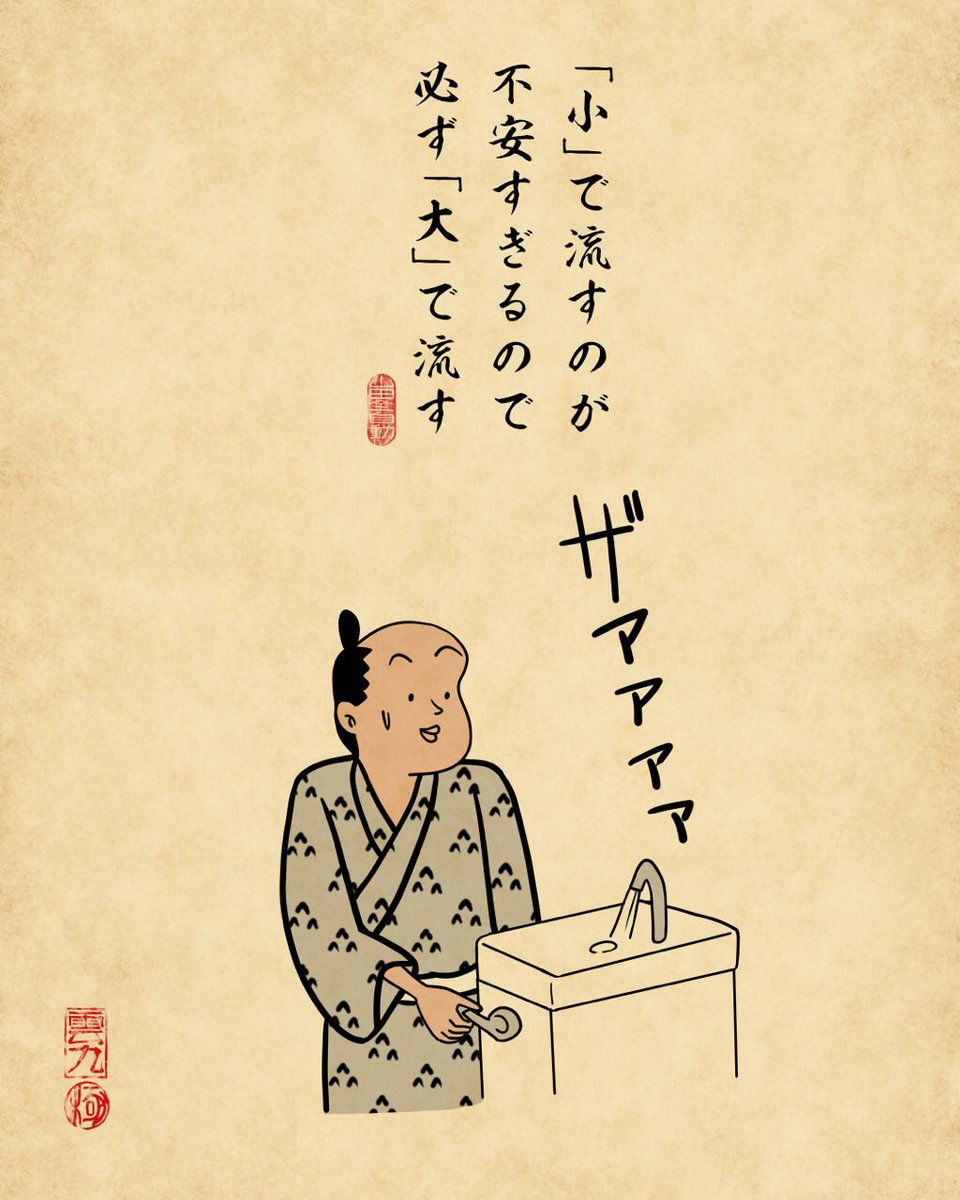 「小」で流すのが
不安すぎるので
必ず「大」で流す
ザァァァァ